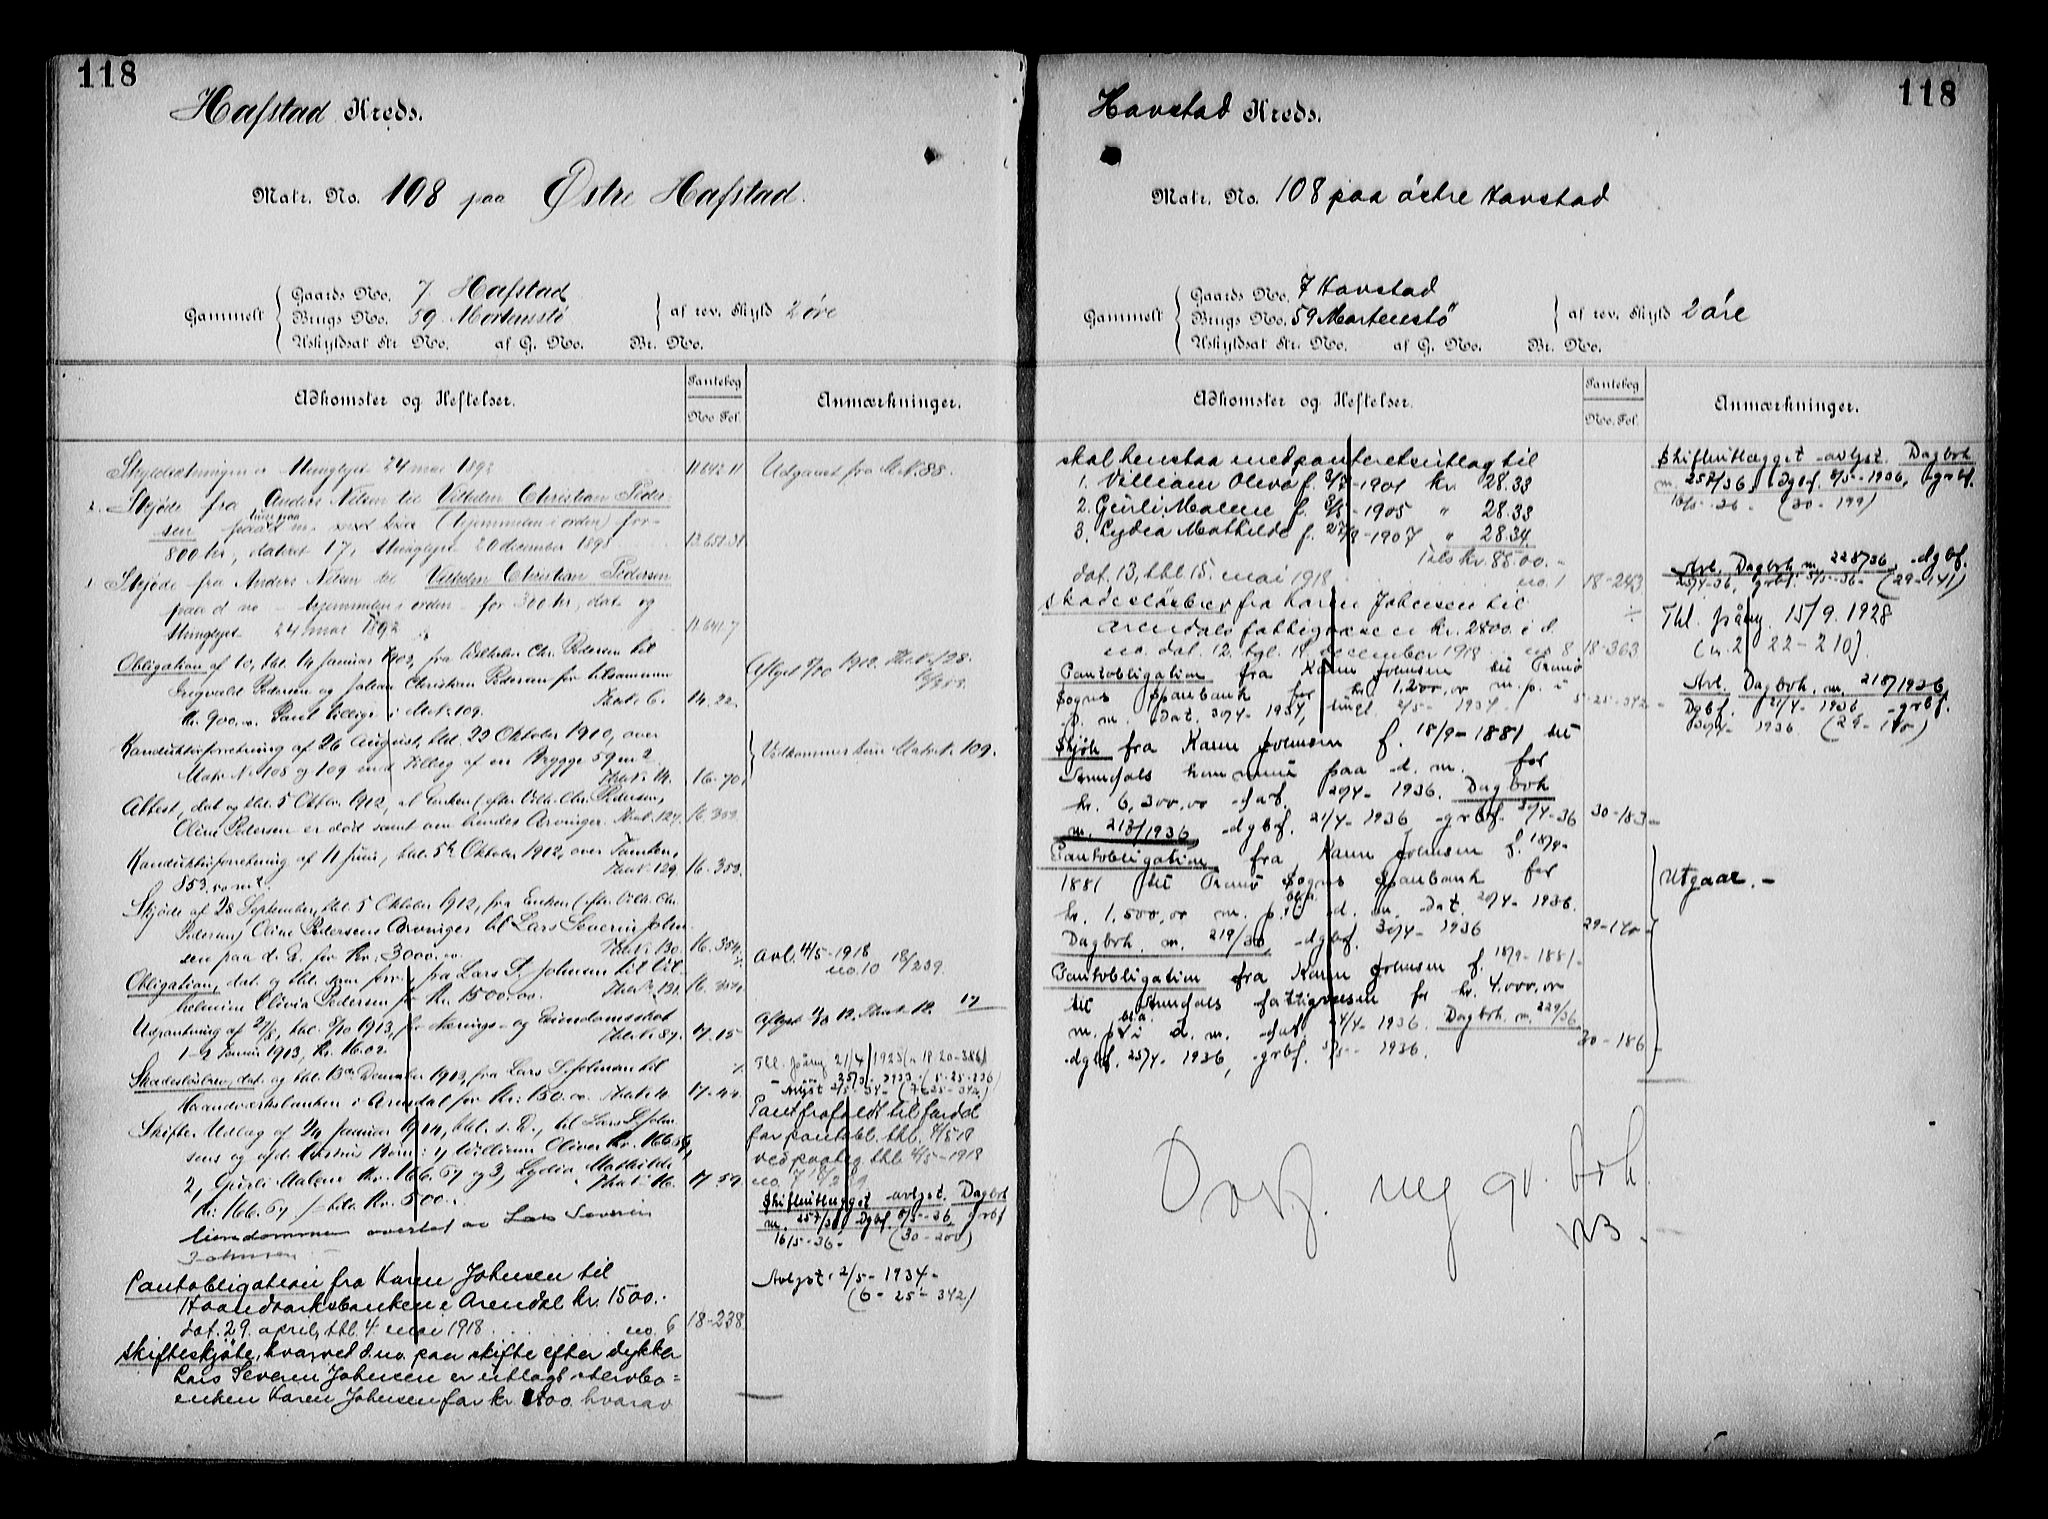 118
Hafstad Kreds.
Matr. No. 108 paa Østre Hafstad.
Gammelt
Gaards No. 7. Hafstad
Brugs No. 59 Mortensstö
af rev. Skyld 2 öre
Uskyldsat Str. No. af G. No. Br. No.
Adkomster og Heftelser.
Pantebog
No. Fol.
Anmærkninger.
Skyldsætningen er thinglyst 24 mai 1892 11 642.11 Udgaaet fra M.N. 88.
2. Skjøde fra Anders Nilsen til Vilhelm Christian Peder-
sen paa (hjemmelen i orden) for
800 kr, dateret 17, thinglyst 20 december 1898 12.651.31
1 Skjøde fra Anders Nilsen til Vilhelm Christian Pedersen
paa d no - hjemmelen i orden - for 300 kr, dat. og
thinglyst 24 mai 1892 11 641.7
Obligation af 10, tbl. 14 Januar 1902, fra Vilhelm Chr. Pedersen til
Ingvald Pedersen og Johan Christian Pedersen for tilsammen
Kr. 900.00. Pant tillige i M.N. 109. Ekst. 6. 14.22.
Aflyst 5/10 1912. Ekst. 128.
Konduktörforretning af 26 August, tbl. 29 Oktober 1910, over
Matr No 108 og 109 med Tillæg af en Brygge 59 m2. Ekst. 14. 16.70.
Vedkommer kun Matr. 109.
Attest, dat og tbl. 5 Oktbr. 1912, at Enken efter Vilh. Chr. Pedersen,
Oline Pedersen er död samt om hendes Arvinger. Ekst. 127. 16.353.
Konduktörforretning af 11 Juni, tbl. 5te Oktober 1912, over Tomten,
853.00 m2. Ekst. 129 16.353.
Skjøde af 28 September, tbl. 5 Oktober 1912, fra Enken (efter Vilh. Chr.
Pedersen) Oline Pedersens Arvinger til Lars Severin John-
sen paa d. E. for Kr. 3000.00. Ekst. 130. 16.354.
Obligation, dat. og tbl. som forr. fra Lars S. Johnsen til Vil-
helmine Olivia Pedersen for Kr. 1500.00. Ekst. 131. 16.354.
avl. 4/5-1918
no.10 18/239.
Udpantning af 27/8, tbl. 8/10 1913, for Nærings- og Eiendomsskat
1-2 Termin 1913, Kr. 16.02. Ekst. 87. 17.15
Skadeslösbrev, dat. og tbl. 13de December 1913, fra Lars S. Johnsen til
Haandværksbanken i Arendal for Kr. 150.00. Ekst. 4. 17.44
Tbl. påteg. 21/4 1925 (n 18 20-386)
Avlyst 2/5-34- (7-25-342)
Skifte-Udlæg af 24 Januar 1914, tbl. s. D., til Lars S. John-
sens og afdöde Hustrus Börn: 1, William Oliver Kr. 166.66,
2, Gurli Malene Kr. 166.67 og 3, Lydia Mathilde
Kr. 166.67 /= tils. Kr. 500.-. Ekst. 16. 17.59.
Eiendommen overtat av Lars Severin
Johnsen.
Pant frafaldt til fordel
for pantobl. tbl. 4/5 18
ved paateg. tbl. 4/5-1918
no. 7 18/239
Skifteutlægget avlyst. Dagbok
n. 257/36, Dgbf. 8/5-36, grbf.
16/5-36- (30-200)
Pantobligation fra Karen Johnsen til
Haandværksbanken i Arendal kr. 1500.-
dat. 29. april, tbl. 4. mai 1918 no. 6 18-238
Avlyst 2/5-1934-
(6-25-342)
Skifteskjöte, hvorved d. no. paa skifte efter dykker
Lars Severin Johnsen er utlagt aterlevo=
enken Karen Johnsen for kr. 1500. hvorav
118
Havstad Kreds.
Matr. No. 108 paa östre Havstad
Gammelt
Gaards No. 7 Havstad
Brugs No. 59 Mortenstö
af rev. Skyld 2 öre
Uskyldsat Str. No. af G. No. Br. No.
Adkomster og Heftelser.
Pantebog
No. Fol.
Anmærkninger.
skal henstaa med panteretsutlæg til
1. William Oliva f. 3/7-1901 kr. 28.33
2. Gurli Malene f. 8/8-1905 " 28.33
3. Lydia Mathilde f. 27/9-1907 " 28.34
Tils kr. 85.00.-
dat. 13, tbl. 15. mai 1918 no. 1 18-243
Skifteutlægget avlyst. Dagbok
n. 257/36, dgbf. 8/5-1936, grbf.
16/5-36- (30-199)
Skadeslösbrev fra Karen Johnsen til
Arendals fattigvæsen kr. 2800. i d.
no. dat. 12. tgl. 14. december 1918 no 8 18-363
Avl. Dagbok n. 228/36, dgbf.
25/4-36, grbf. 5/5-36- (29-141)
Tbl. påteg. 15/9. 1928
(n. 2 22-210).
Pantobligation fra Karen Johnsen til Tromö
Sogns Sparebank for kr. 1,200,00 m. p. i
d. m. Dat. 30/4-1934, tingl. 2/5-1934- 5-25-342-
Avl. Dagbok. n. 218/1936
Dgbf. 21/4-1936, grbf.
30/4-1936 (29-140)
Skjöte fra Karen Johnsen f. 18/9-1881 til
Arendals kommune paa d. m. for
kr. 6,300,00 dat. 20/4-1936. Dagbok
n. 217/1936 dgbf. 21/4-1936 grbf. 30/4-36 30-183-
Pantobligation fra Karen Johnsen f. 18/9-
1881 til Tromö Sogns Sparebank for
kr. 1,500,00 m. p. i d. m. Dat. 20/4-1936.
Dagbok. n. 219/36, dgbf. 30/4-1936 29-140-
Utgaar.-
Pantobligation fra Karen Johnsen f. 18/9-1881-
til Arendals fattigvesen for kr. 4.000,00
m. p. i d. m. dat. 24/4-1936. Dagbok n. 229/36.
dgbf. 25/4-1936, grbf. 5/5-1936. 30-186-
Overf. ny gr. bok.